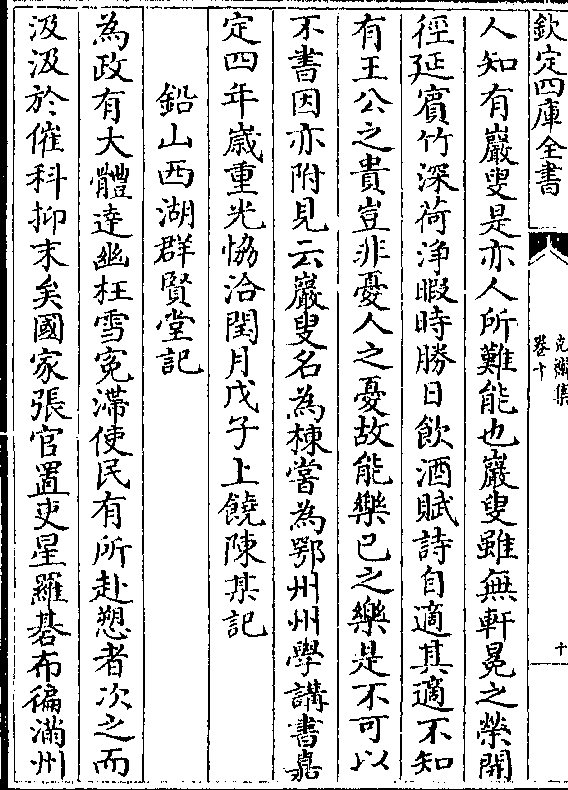 欽定四庫全書
克齋集
卷十
十
人知有巖叟是亦人所難能也巖叟雖無軒冕之榮開
徑延賓竹深荷浄暇時勝日飲酒賦詩自適其適不知
有王公之貴豈非憂人之憂故能樂已之樂是不可以
不書因亦附見云巖叟名為棟嘗為鄂州州學講書嘉
定四年嵗重光恊洽閏月戊子上饒陳某記
鉛山西湖群賢堂記
為政有大體達幽枉雪寃滯使民有所赴愬者次之而
汲汲於催科抑末矣國家張官置吏星羅碁布徧滿州